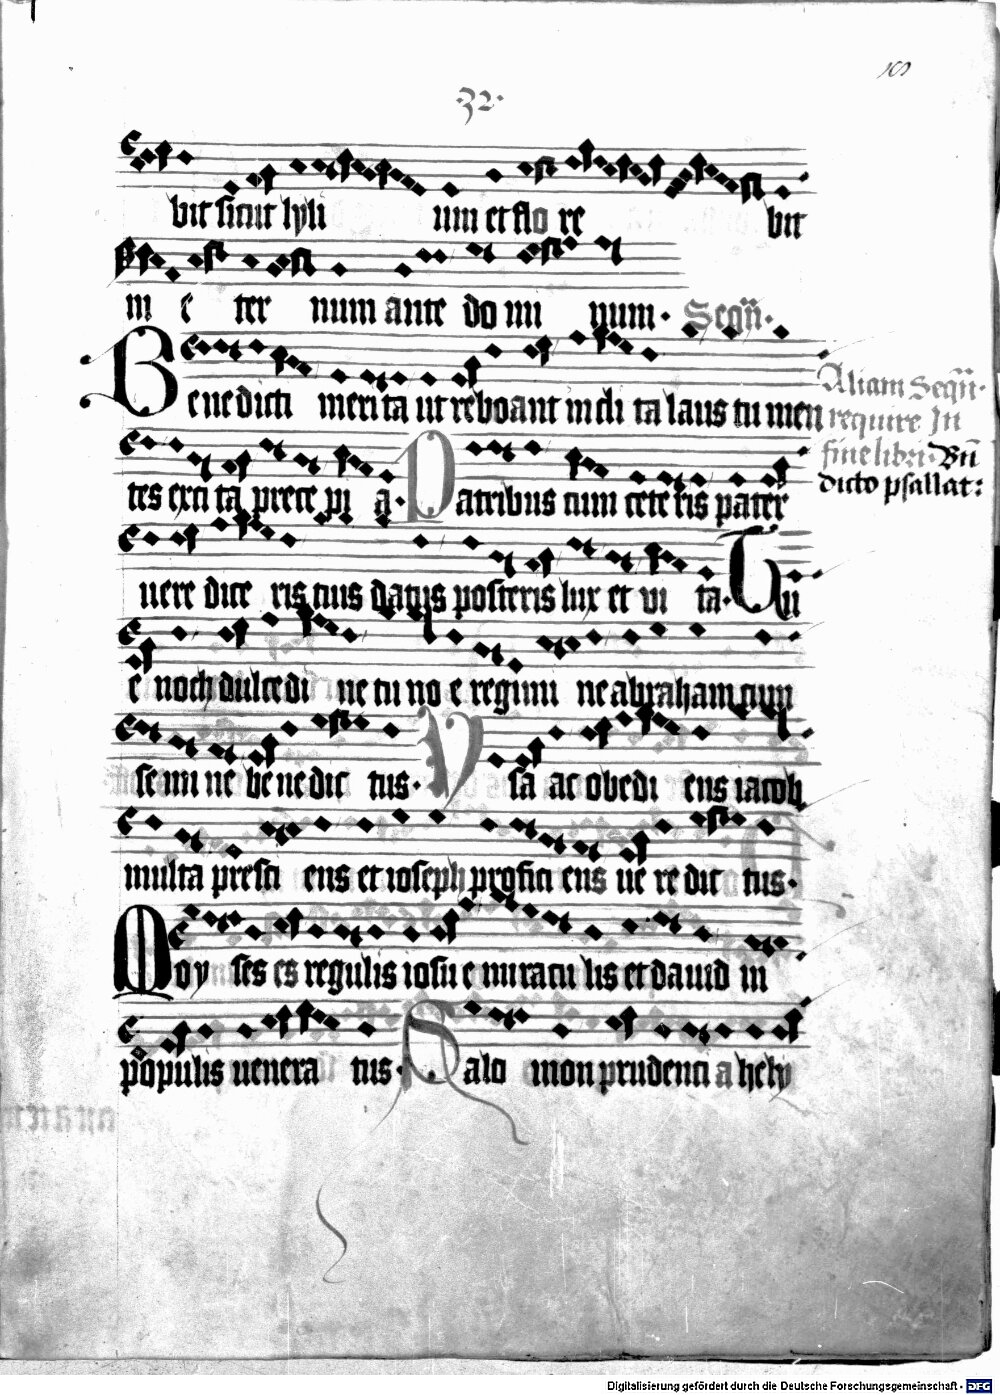 ·32·
bit sicut lyli um et flo re bit
in e ter num ante do mi num· Seqn̄·
Benedicti meri ta ut reboant indi ta laus tu men
Aliam Seqn̄·
require In
fine libri· Bn̄
dicto psallat:
tes exci ta prece pi a· Patribus cum cete ris pater
uere dice ris tuis datus posteris lux et vi ta· Tu
e noch dulcedi ne tu no e regimi ne abraham cum
semi ne be ne dic tus· Ysa ac obedi ens iacob
multa presci ens et ioseph profici ens ue re dic tus·
Moy ses es regulis iosu e miracu lis et dauid in
populis uenera tus· Salo mon prudenci a hely
Digitalisierung gefördert durch die Deutsche Forschungsgemeinschaft - DFG